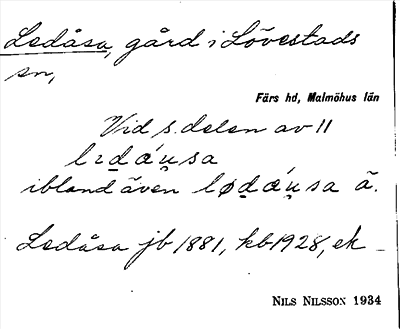 Ledåsa, gård i Lövestads
sn,
Färs hd, Malmöhus län
Vid s. delen av 11
lıd̲áu̯sa
ibland även lød̲áu̯sa ä.
Ledåsa jb 1881, kb 1928, ek –
NILS NILSSON 1934